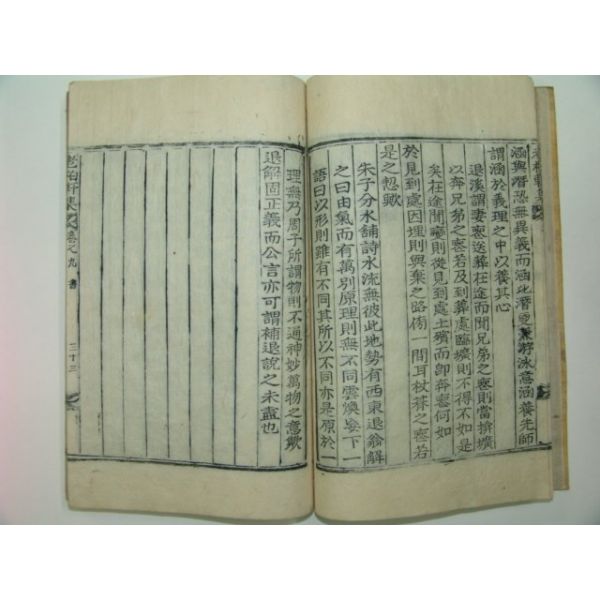 涵與潛恐無異義而涵比潛更兼游泳意涵養先師
謂涵於義理之中以養其心
退溪謂妻喪送葬在途而聞兄弟之喪則當擯壙
以奔兄弟之喪若及到葬處臨壙則不得不如是
矣在途聞喪則從見到處土殯而卽奔喪何如
於見到處因埋則與葉之路傍一間耳杖葬之喪若
是之恝歟
朱子分水舖詩水流無彼此地勢有西東退翁解
之曰由氣而有萬別原理則無不同雲煥妄下一
語曰以形則雖有不同其所以不同亦是原於一
理無乃周子所謂物則不通神妙萬物之意歟
退解固正義而公言亦可謂補退說之未盡也
老柏軒集
卷之九 書
三十三